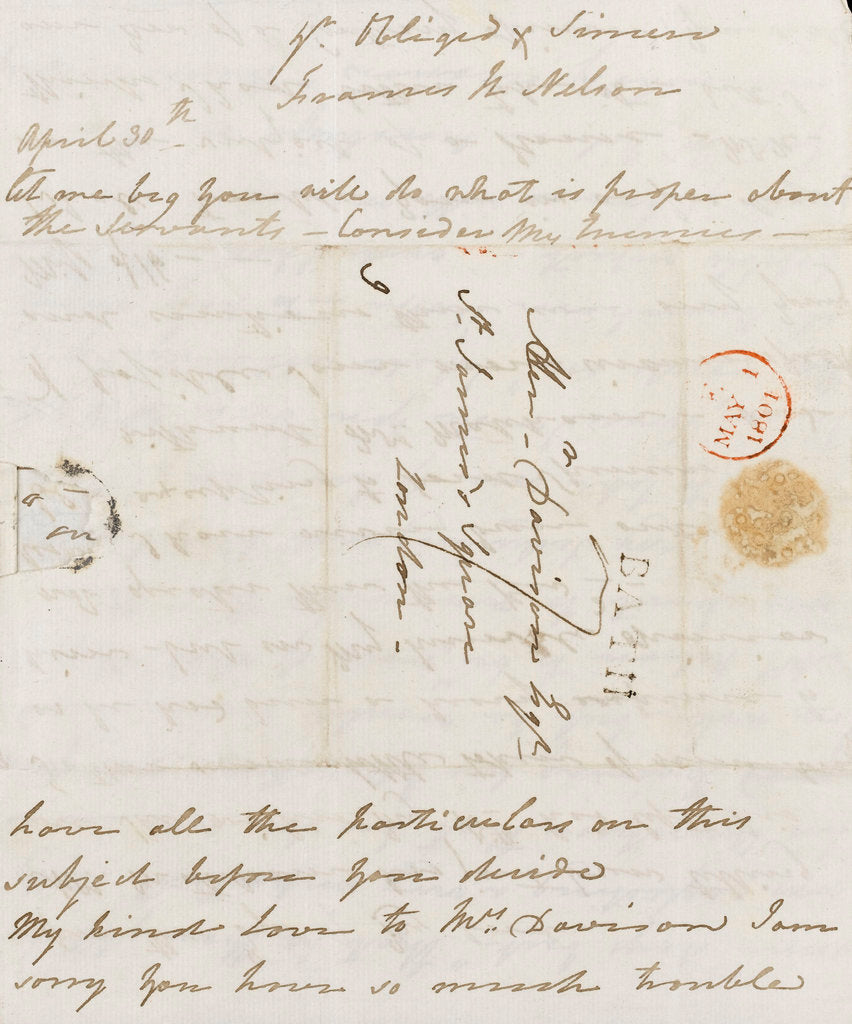 Yr Obliged & Sincere
Frances H Nelson
April 30th
let me beg you will do what is proper about
the servants – Consider My Enemies –
6
Alexr Davison Esqr
St James's Square
London –
BATH
MAY 1
1801
a
on
have all the particulars on this
subject before you decide
My kind Love to Mrs Davison I am
sorry you have so much trouble